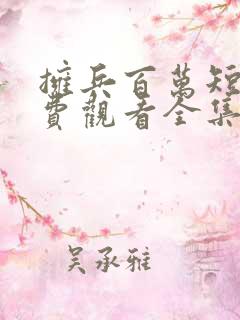 擁兵百萬短
費觀看全集
吳承雅